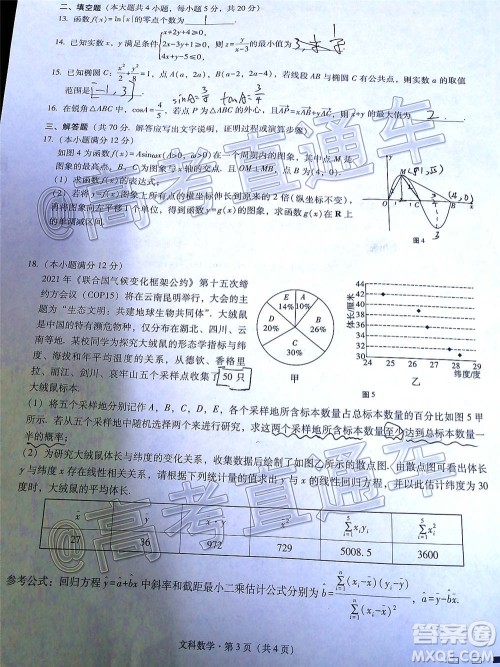 二、填空题（本大题共4小题，每小题5分，共20分）
13. 函数f(x)=ln|x|的零点个数为 1 .
{x+2y+4≥0
14. 已知实数x，y满足条件{2x-3y+1≥0，则z=y/(x-3)的最小值为
{x+y-2≤0
15. 已知椭圆C：x²/2+y²/8=1，点A(a, 2a)，B(1, a)，若线段AB与椭圆C有公共点，则实数a的取值
范围是 [-1, 3]
sinA=3/5 tanA=3/4
16. 在锐角△ABC中，cosA=4/5，若点P为△ABC的外心，且AP=xAB+yAC，则x+y的最大值为 2 .
三、解答题（共70分．解答应写出文字说明，证明过程或演算步骤）
17.（本小题满分12分）
图象的最高点，B，C为图象与x轴的交点，且OM⊥MB，点B(4, 0)．
（1）求函数f(x)的表达式；
（2）若将函数f(x)图象上所有点的横坐标伸长到原来的2倍（纵坐标不变），
的单调减区间．
图4
18.（本小题满分12分）
2021年《联合国气候变化框架公约》第十五次缔
约方会议（COP15）将在云南昆明举行，大会的主
题为“生态文明：共建地球生命共同体”．大绒鼠
是中国的特有濒危物种，仅分布在湖北、四川、云
南等地，某同学为探究大绒鼠的形态学指标与纬
度、海拔和年平均温度的关系，从德钦、香格里
拉、丽江、剑川、哀牢山五个采样地收集了50只
大绒鼠标本．
14%
10%
26%
20%
30%
A
B
C
D
E
甲
体长/厘米
44
42
40
38
36
34
32
24
25
26
27
28
29
30
纬度/度
乙
图5
（1）将五个采样地分别记作A，B，C，D，E，各个采样地所含标本数量占总标本数量的百分比如图5甲
所示，若从五个采样地中随机选择两个大绒鼠开展研究，求这两个采样地所含标本数量至少达到总标本数量一
半的概率；
（2）为研究大绒鼠体长与纬度的变化关系，收集数据后绘制了如图乙所示的散点图．由散点图可看出体长
y与纬度x存在线性相关关系，请根据下列统计量的值，求y与x的线性回归方程，并以此估计纬度为30
度时，大绒鼠的平均体长．
x̄ ȳ x̄ȳ x̄² Σxᵢyᵢ Σxᵢ²
27 36 972 729 5008.5 3600
参考公式：回归方程ŷ=â+b̂x中斜率和截距最小二乘估计公式分别为b̂=Σ(xᵢ-x̄)(yᵢ-ȳ)/Σ(xᵢ-x̄)²，â=ȳ-b̂x̄
文科数学·第3页（共4页）
高考直通车
高考直通车
答案圈